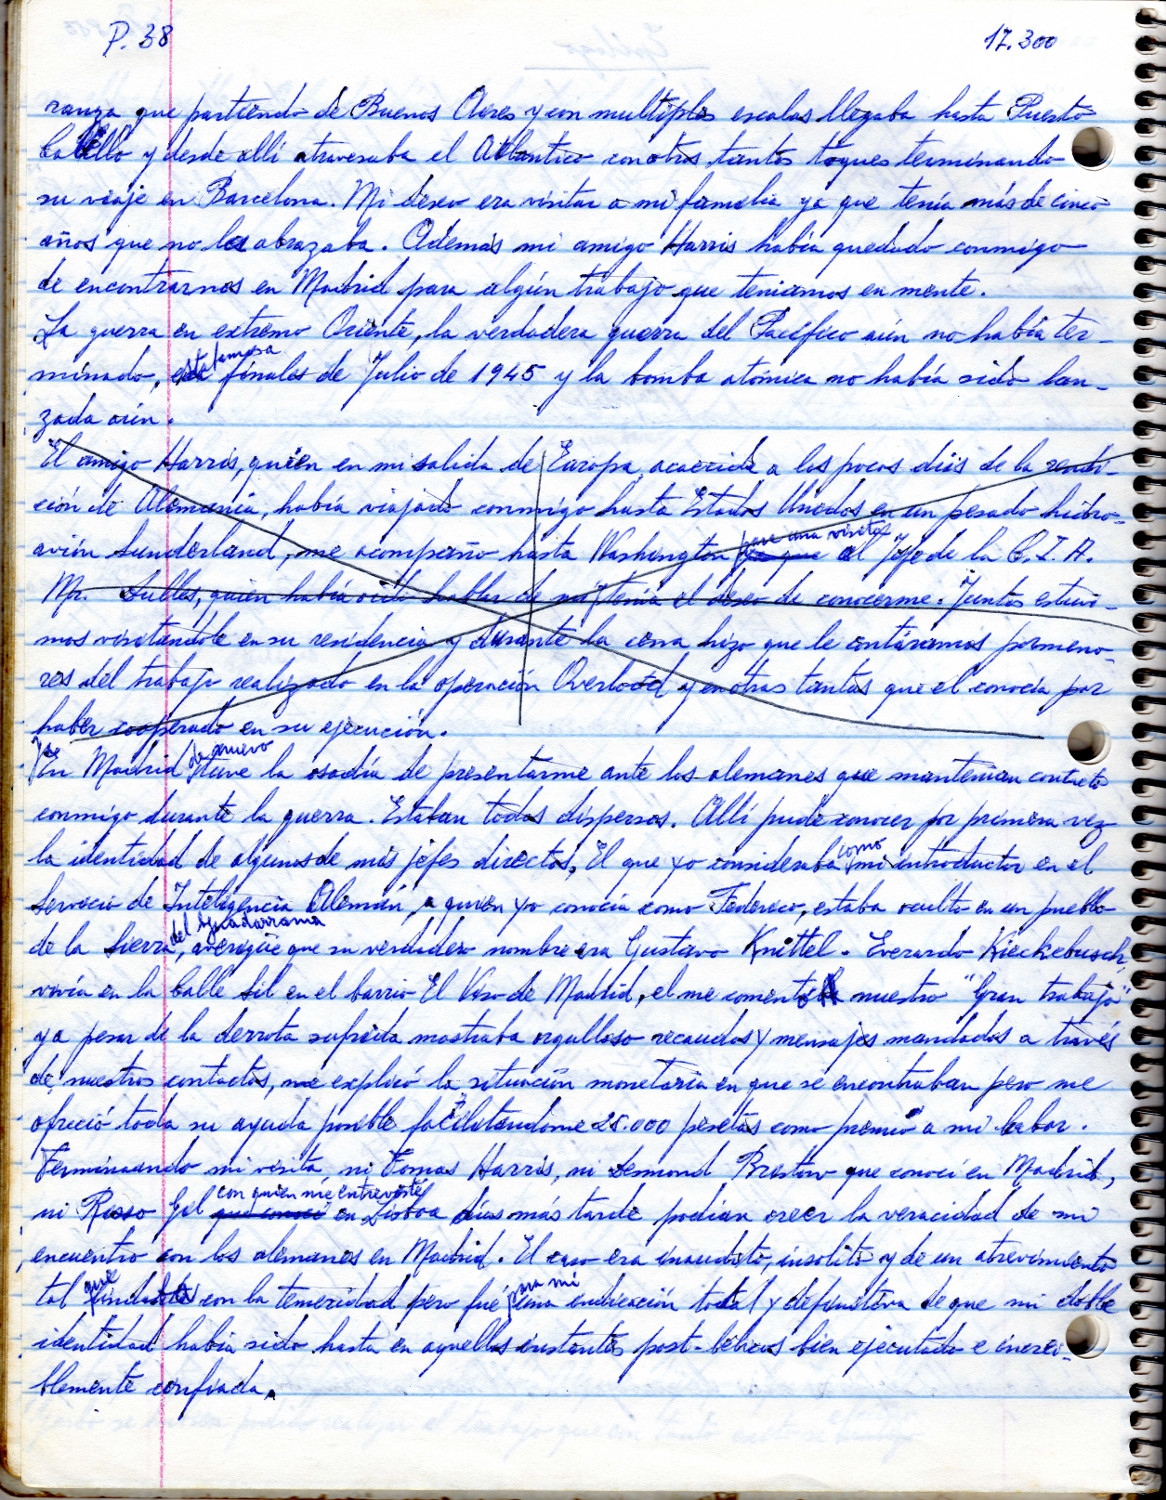 P. 38
17.300
ranza que partiendo de Buenos Aeres y con multiples escalas llegaba hasta Puesto
Cabello y desde allí atravesaba el Atlantico con otros tantos toques terminando
su viaje en Barcelona. Mi deseo era visitar a mi familia ya que tenía más de cinco
años que no la abrazaba. Además mi amigo Harris había quedado conmigo
de encontrarnos en Madrid para algún trabajo que teniamos en mente.
La guerra en extremo Oriente, la verdadera guerra del Pacífico aún no había ter-
minado, estabamos a finales de Julio de 1945 y la bomba atómica no había sido lan-
zada aún.
El amigo Harris, quien en mi salida de Europa, acaecida a los pocos dias de la rendi-
ción de Alemania, había viajado conmigo hasta Estados Unidos en un pesado hidro-
avión Sunderland, me acompaño hasta Washington para una visita ya que al Jefe de la C.I.A.
Mr. Dulles, quien había oido hablar de mi y tenía el deseo de conocerme. Juntos estuvi-
mos visitandole en su residencia y durante la cena hizo que le contáramos pormeno-
res del trabajo realizado en la operación Overlood y en otras tantas que el conocía por
haber cooperado en su ejecución.
Ya En Madrid de nuevo tuve la osadía de presentarme ante los alemanes que mantenian contacto
conmigo durante la guerra. Estaban todos dispersos. Allí pude conocer por primera vez
la identidad de algunos de mis jefes directos, El que yo consideraba como mi introductor en el
Servicio de Inteligencia Alemán, a quien yo conocía como Federico, estaba oculto en un pueblo
de la Sierra del Guadarrama, averigüe que su verdadero nombre era Gustavo Knittel. Everardo Kieckebusch,
vivía en la Calle Sil en el barrio El Viso de Madrid, el me comentó nuestro "Gran trabajo"
y a pesar de la derrota sufrida mostraba orgulloso recaudos y mensajes mandados a través
de nuestros contactos, me explicó la situación monetaria en que se encontraban pero me
ofreció toda su ayuda posible facilitandome 25.000 pesetas como premio a mi labor.
Terminando mi visita, ni Tomas Harris, ni Desmond Bristow que conocí en Madrid,
ni Risso Gil con quien me entrevisté que conocí en Lisboa dias más tarde podian creer la veracidad de mi
encuentro con los alemanes en Madrid. El caso era inaudito, insolito y de un atrevimiento
tal que lindaba con la temeridad pero fué para mi una indicación total y definitiva de que mi doble
identidad había sido hasta en aquellos instantes post-bélicos bien ejecutado e increi-
blemente confiada.